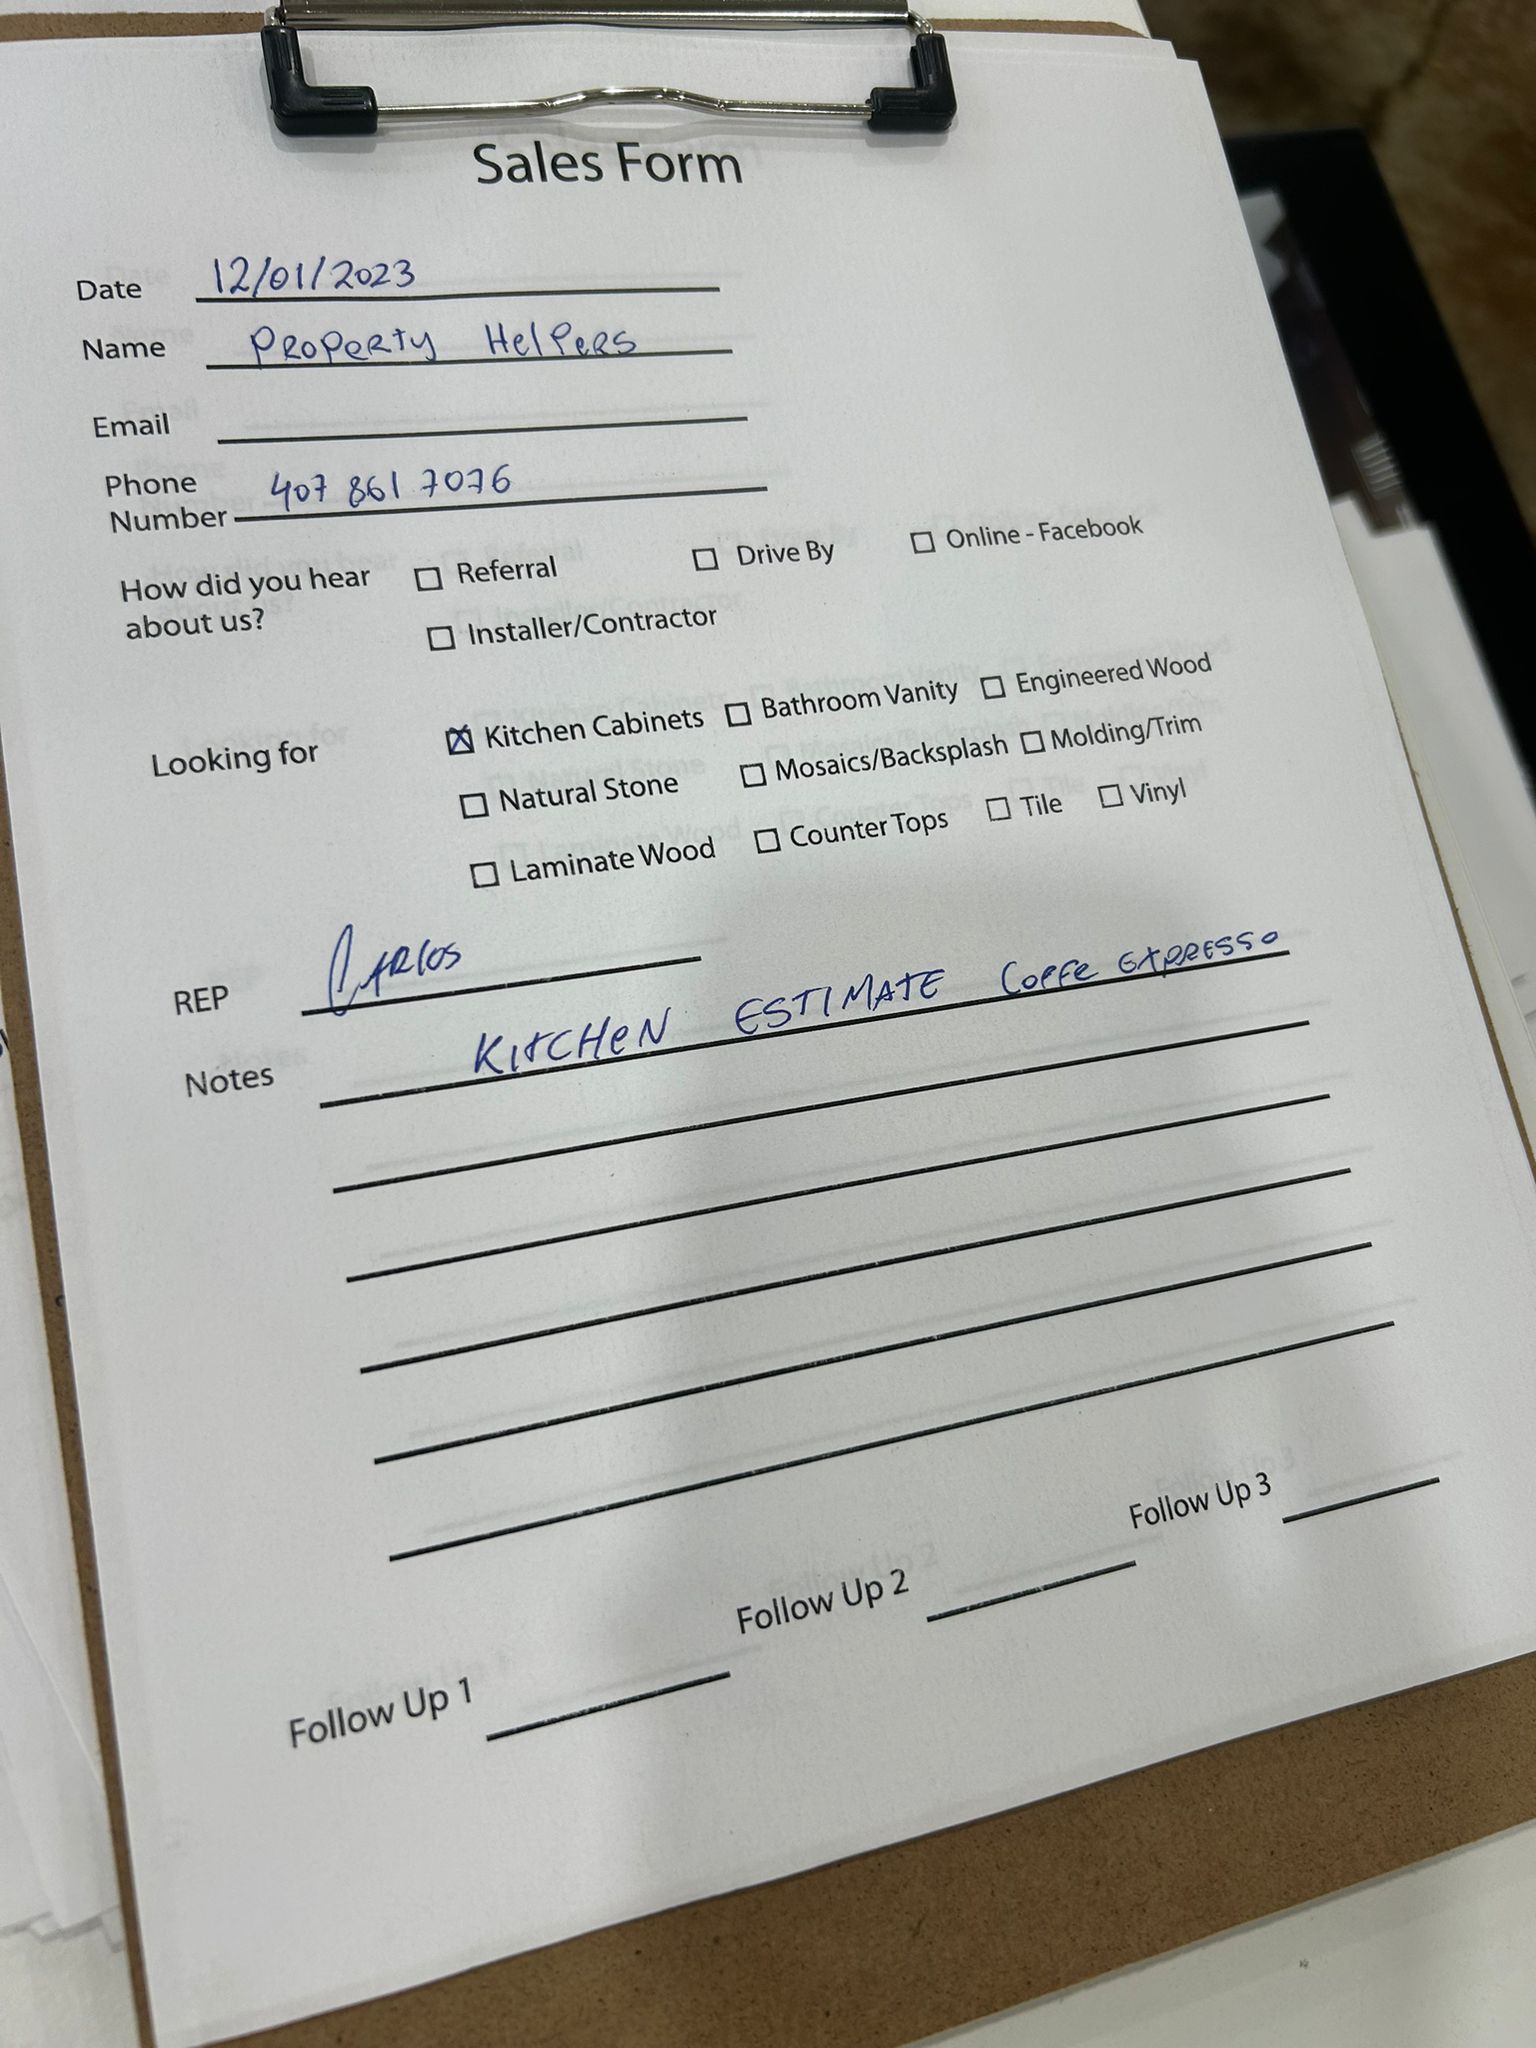 Sales Form
Date 12/01/2023
Name PROPERTY HelPERS
Email
Phone
Number 407 861 7076
How did you hear ☐ Referral ☐ Drive By ☐ Online - Facebook
about us? ☐ Installer/Contractor
Looking for ☒ Kitchen Cabinets ☐ Bathroom Vanity ☐ Engineered Wood
☐ Natural Stone ☐ Mosaics/Backsplash ☐ Molding/Trim
☐ Laminate Wood ☐ Counter Tops ☐ Tile ☐ Vinyl
REP CARlos
Notes KitCHeN ESTIMATE COFFE EXPRESSO
Follow Up 1 Follow Up 2 Follow Up 3